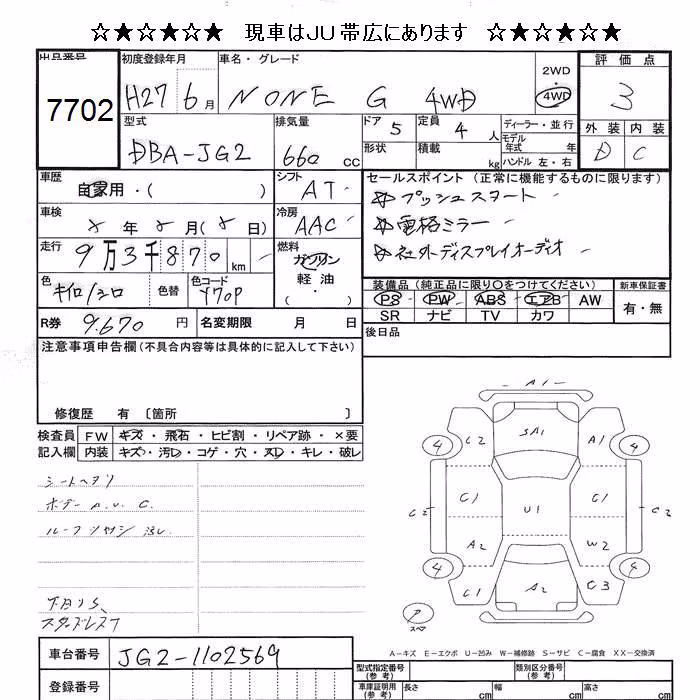 ☆★☆★☆★ 現車はJU帯広にあります ☆★☆★☆★
出品番号 7702
初度登録年月 H27 6月
車名・グレード NONE G 4WD
2WD ・ 4WD
評価点 3
外装 D 内装 C
型式 DBA-JG2
排気量 660 CC
ドア 5
定員 4 人
形状
積載 kg
ディーラー・並行
モデル年式 年
ハンドル 左・右
車歴 自家用・( )
シフト AT
車検 年 月( 日)
冷房 AAC
走行 9万3千870 km
燃料 ガソリン 軽油 ・
色 キイロ/シロ
色替
色コード Y70P
R券 9.670 円
名変期限 月 日
セールスポイント(正常に機能するものに限ります)
☆プッシュスタート
☆電格ミラー
☆社外ディスプレイオーディオ
装備品(純正品に限り〇をつけてください)
PS PW ABS エアB AW
SR ナビ TV カワ
新車保証書 有・無
後日品
注意事項申告欄(不具合内容等は具体的に記入して下さい)
修復歴 有 〔箇所 〕
検査員記入欄
FW キズ・飛石・ヒビ割・リペア跡・×要
内装 キズ・汚レ・コゲ・穴・スレ・キレ・破レ
シートヘタリ
ボデー A.U.C.
下回りS、
スタッドレス7
A1
C2 SA1 A1
4 4
C2 C1 U1 C1 C2
A2 W2
4 4
C1 A2 C3
ア
スペア
A-キズ E-エクボ U-凹み W-補修跡 S-サビ C-腐食 XX-交換済
車台番号 JG2-1102569
登録番号
型式指定番号(参考)
類別区分番号(参考)
車庫証明用(参考) 長さ cm 幅 cm 高さ cm